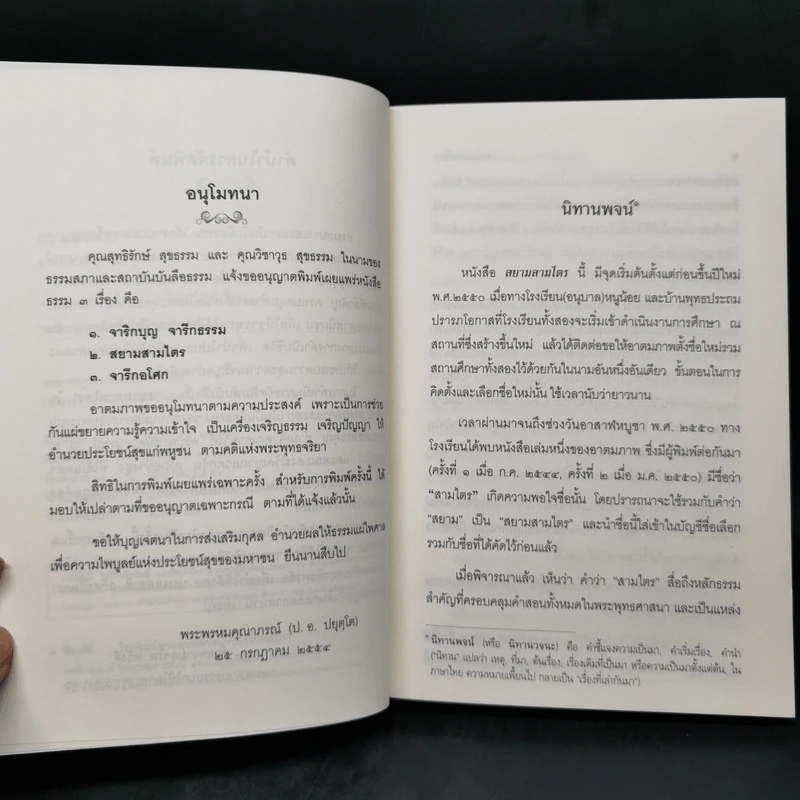 อนุโมทนา
คุณสุทธิรักษ์ สุขธรรม และ คุณวิชาวุธ สุขธรรม ในนามของ
ธรรมสภาและสถาบันบันลือธรรม แจ้งขออนุญาตพิมพ์เผยแพร่หนังสือ
ธรรม ๓ เรื่อง คือ
๑. จาริกบุญ จารึกธรรม
๒. สยามสามไตร
๓. จารึกอโศก
อาตมภาพขออนุโมทนาตามความประสงค์ เพราะเป็นการช่วย
กันแผ่ขยายความรู้ความเข้าใจ เป็นเครื่องเจริญธรรม เจริญปัญญา ให้
อำนวยประโยชน์สุขแก่พหูชน ตามคติแห่งพระพุทธจริยา
สิทธิในการพิมพ์เผยแพร่เฉพาะครั้ง สำหรับการพิมพ์ครั้งนี้ ได้
มอบให้เปล่าตามที่ขออนุญาตเฉพาะกรณี ตามที่ได้แจ้งแล้วนั้น
ขอให้บุญเจตนาในการส่งเสริมกุศล อำนวยผลให้ธรรมแผ่ไพศาล
เพื่อความไพบูลย์แห่งประโยชน์สุขของมหาชน ยืนนานสืบไป
พระพรหมคุณาภรณ์ (ป. อ. ปยุตฺโต)
๒๕ กรกฎาคม ๒๕๕๔
นิทานพจน์๑
หนังสือ สยามสามไตร นี้ มีจุดเริ่มต้นตั้งแต่ก่อนขึ้นปีใหม่
พ.ศ.๒๕๕๐ เมื่อทางโรงเรียน(อนุบาล)หนูน้อย และบ้านพุทธประถม
ปรารภโอกาสที่โรงเรียนทั้งสองจะเริ่มเข้าดำเนินงานการศึกษา ณ
สถานที่ซึ่งสร้างขึ้นใหม่ แล้วได้ติดต่อขอให้อาตมภาพตั้งชื่อใหม่รวม
สถานศึกษาทั้งสองไว้ด้วยกันในนามอันหนึ่งอันเดียว ขั้นตอนในการ
คิดตั้งและเลือกชื่อใหม่นั้น ใช้เวลานับว่ายาวนาน
เวลาผ่านมาจนถึงช่วงวันอาสาฬหบูชา พ.ศ. ๒๕๕๐ ทาง
โรงเรียนได้พบหนังสือเล่มหนึ่งของอาตมภาพ ซึ่งมีผู้พิมพ์ต่อกันมา
(ครั้งที่ ๑ เมื่อ ก.ค. ๒๕๔๔, ครั้งที่ ๒ เมื่อ ม.ค. ๒๕๕๐) มีชื่อว่า
“สามไตร” เกิดความพอใจชื่อนั้น โดยปรารถนาจะใช้รวมกับคำว่า
“สยาม” เป็น “สยามสามไตร” และนำชื่อนี้ใส่เข้าในบัญชีชื่อเลือก
รวมกับชื่อที่ได้คัดไว้ก่อนแล้ว
เมื่อพิจารณาแล้ว เห็นว่า คำว่า “สามไตร” สื่อถึงหลักธรรม
สำคัญที่ครอบคลุมคำสอนทั้งหมดในพระพุทธศาสนา และเป็นแหล่ง
๑ นิทานพจน์ (หรือ นิทานวจนะ) คือ คำชี้แจงความเป็นมา, คำเริ่มเรื่อง, คำนำ
(“นิทาน” แปลว่า เหตุ, ที่มา, ต้นเรื่อง, เรื่องเดิมที่เป็นมา หรือความเป็นมาตั้งแต่ต้น; ใน
ภาษาไทย ความหมายเพี้ยนไป กลายเป็น “เรื่องที่เล่ากันมา”)